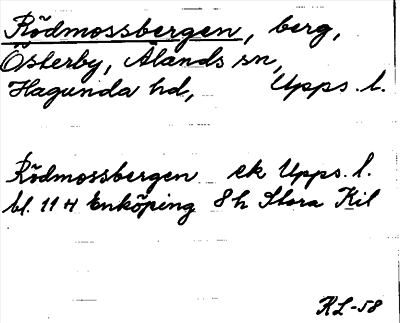 Rödmossbergen, berg,
Österby, Ålands sn,
Hagunda hd, Upps. l.
Rödmossbergen ek Upps. l.
bl. 11 H Enköping 8h Stora Kil
KL-58